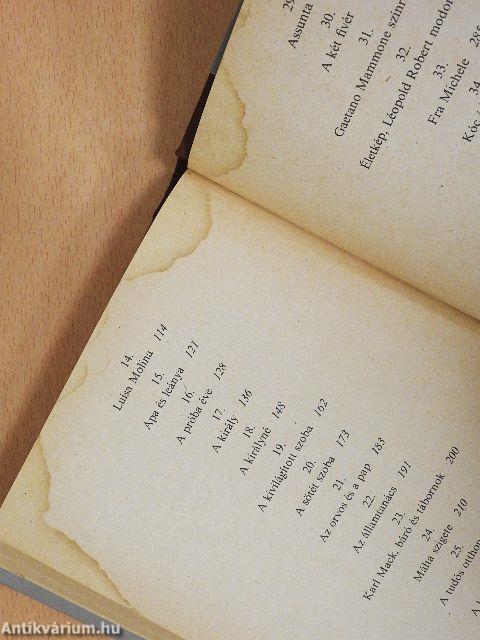 14.
Luisa Molina 114
15.
Apa és leánya 121
16.
A próba éve 128
17.
A király 136
18.
A királyné 148
19.
A kivilágított szoba 162
20.
A sötét szoba 173
21.
Az orvos és a pap 183
22.
Az államtanács 191
23.
Karl Mack, báró és tábornok 200
24.
Málta szigete 210
25.
A tudós
29
Assunta
30.
A két fivér
31.
Gaetano Mammone
32.
Életkép, Léopold Robert
33.
Fra Michele 285
34
Antikvárium.hu